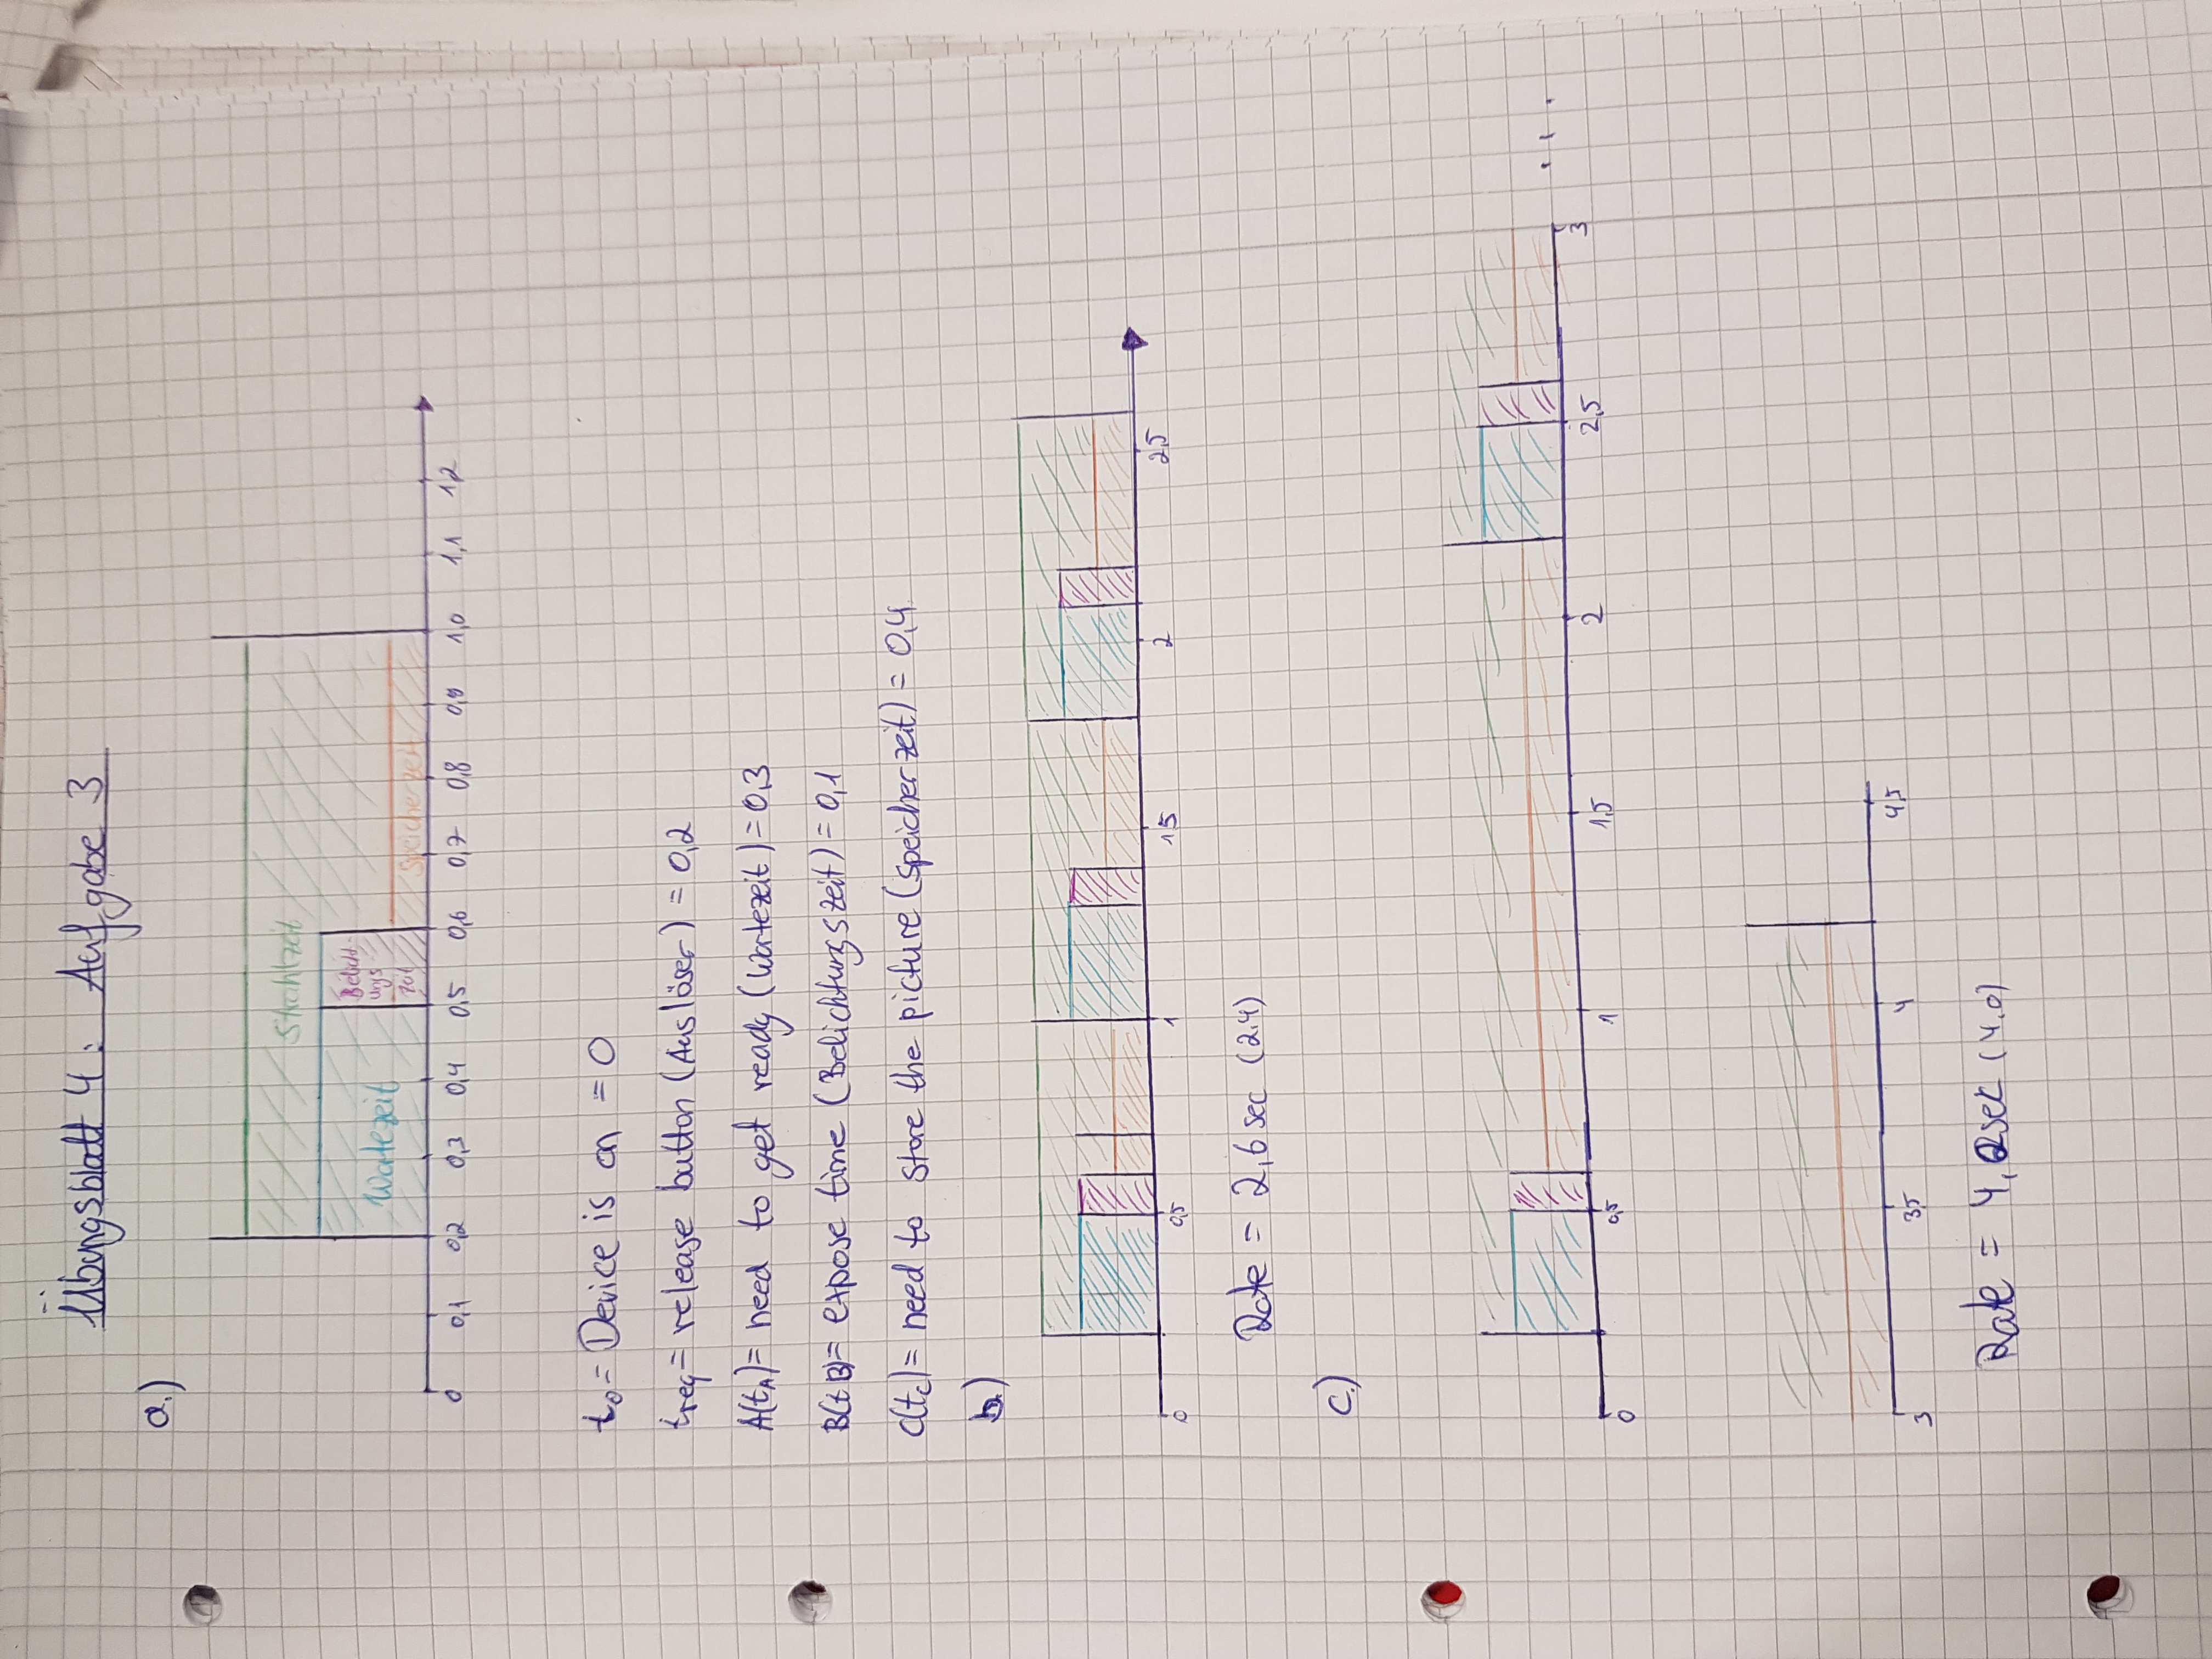 Übungsblatt 4: Aufgabe 3
a.)
Strahlzeit
Wartezeit
Belicht-
ungs
zeit
Speicherzeit
0 0,1 0,2 0,3 0,4 0,5 0,6 0,7 0,8 0,9 1,0 1,1 1,2
t0= Device is on = 0
treq= release button (Auslöser) = 0,2
A(tA)= need to get ready (Wartezeit) = 0,3
B(tB)= expose time (Belichtungszeit) = 0,1
C(tc)= need to store the picture (Speicherzeit) = 0,4
b.)
0 0,5 1 1,5 2 2,5
Rate = 2,6 sec (2,4)
c.)
0 0,5 1 1,5 2 2,5 3 ...
3 3,5 4 4,5
Rate = 4,2sec (4,0)